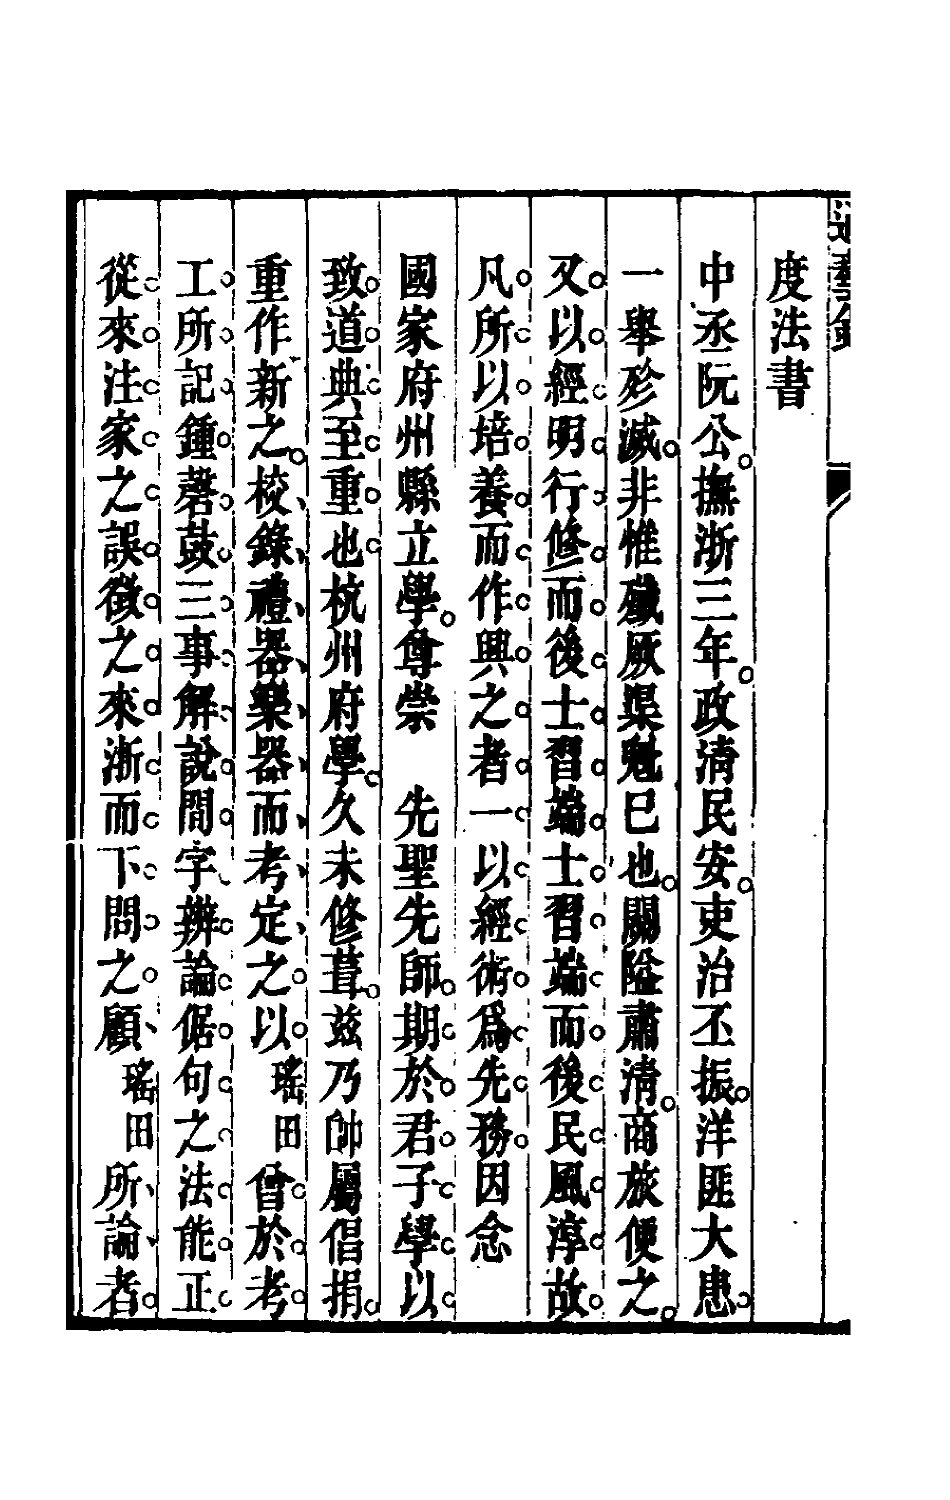 度法書
中丞阮公撫浙三年政清民安吏治丕振洋匪大患
一舉殄滅非惟殲厥渠魁巳也關隘肅清商旅便之
又以經明行修而後士習端士習端而後民風淳故
凡所以培養而作興之者一以經術爲先務因念
國家府州縣立學尊崇　先聖先師期於君子學以
致道典至重也杭州府學久未修葺兹乃帥屬倡捐
重作新之校錄禮器樂器而考定之以瑤田曾於考
工所記鍾磬鼓三事解說間字辨論倨句之法能正
從來注家之誤徵之來浙而下問之顧瑤田所論者
通藝錄